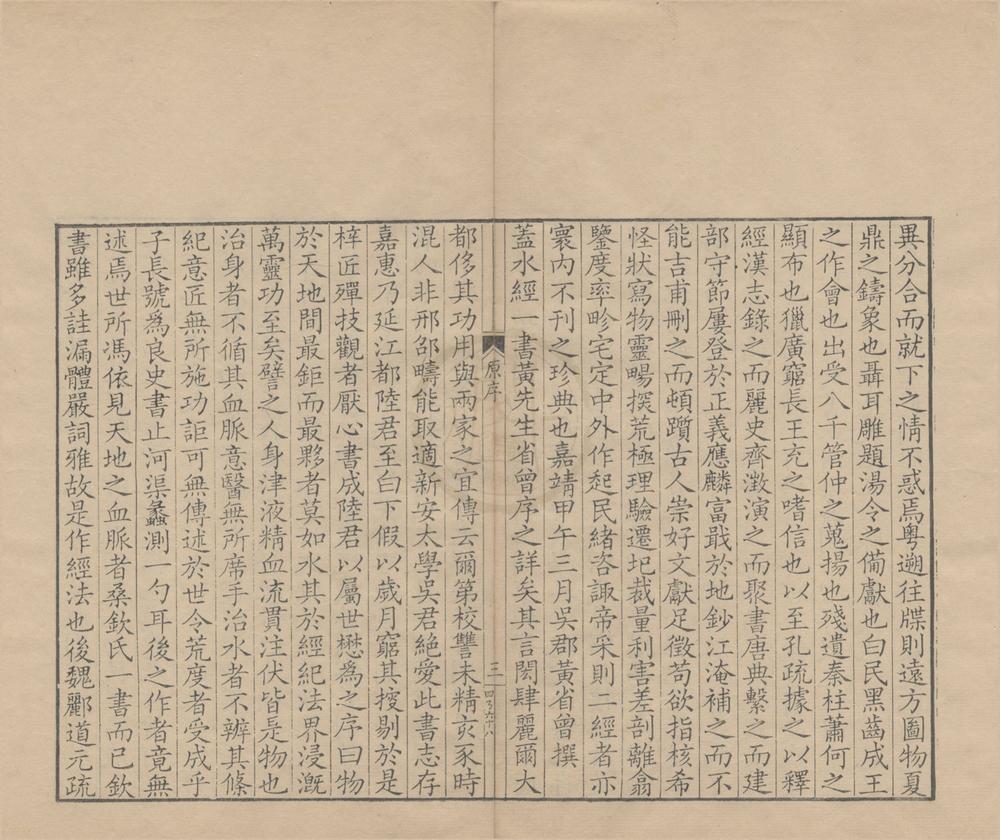 異分合而就下之情不惑焉粵遡往牒則遠方圖物夏
鼎之鑄象也聶耳雕題湯令之備獻也白民黑齒成王
之作會也出受八千管仲之蒐揚也殘遺秦柱蕭何之
顯布也獵廣窮長王充之嗜信也以至孔疏據之以釋
經漢志錄之而麗史齊澂演之而聚書唐典繫之而建
部守節屢登於正義應麟富戢於地鈔江淹補之而不
能吉甫刪之而頓躓古人崇好文獻足徵苟欲指核希
怪狀寫物靈暢撰荒極理驗遷圮裁量利害差剖離翕
鑒度率畛宅定中外作起民緒咨諏帝采則二經者亦
寰內不刊之珍典也嘉靖甲午三月吳郡黃省曾撰
蓋水經一書黃先生省曾序之詳矣其言閎肆麗爾大
原序
三
四乃六十八
都侈其功用與兩家之宜傳云爾第校讐未精亥豕時
混人非邢邵疇能取適新安太學吳君絕愛此書志存
嘉惠乃延江都陸君至白下假以歲月窮其搜剔於是
梓匠殫技觀者厭心書成陸君以屬世懋為之序曰物
於天地間最鉅而最夥者莫如水其於經紀法界浸溉
萬靈功至矣譬之人身津液精血流貫注伏皆是物也
治身者不循其血脈意醫無所席手治水者不辨其條
紀意匠無所施功詎可無傳述於世令荒度者受成乎
子長號為良史書止河渠蠡測一勺耳後之作者竟無
述焉世所馮依見天地之血脈者桑欽氏一書而已欽
書雖多詿漏體嚴詞雅故是作經法也後魏酈道元疏